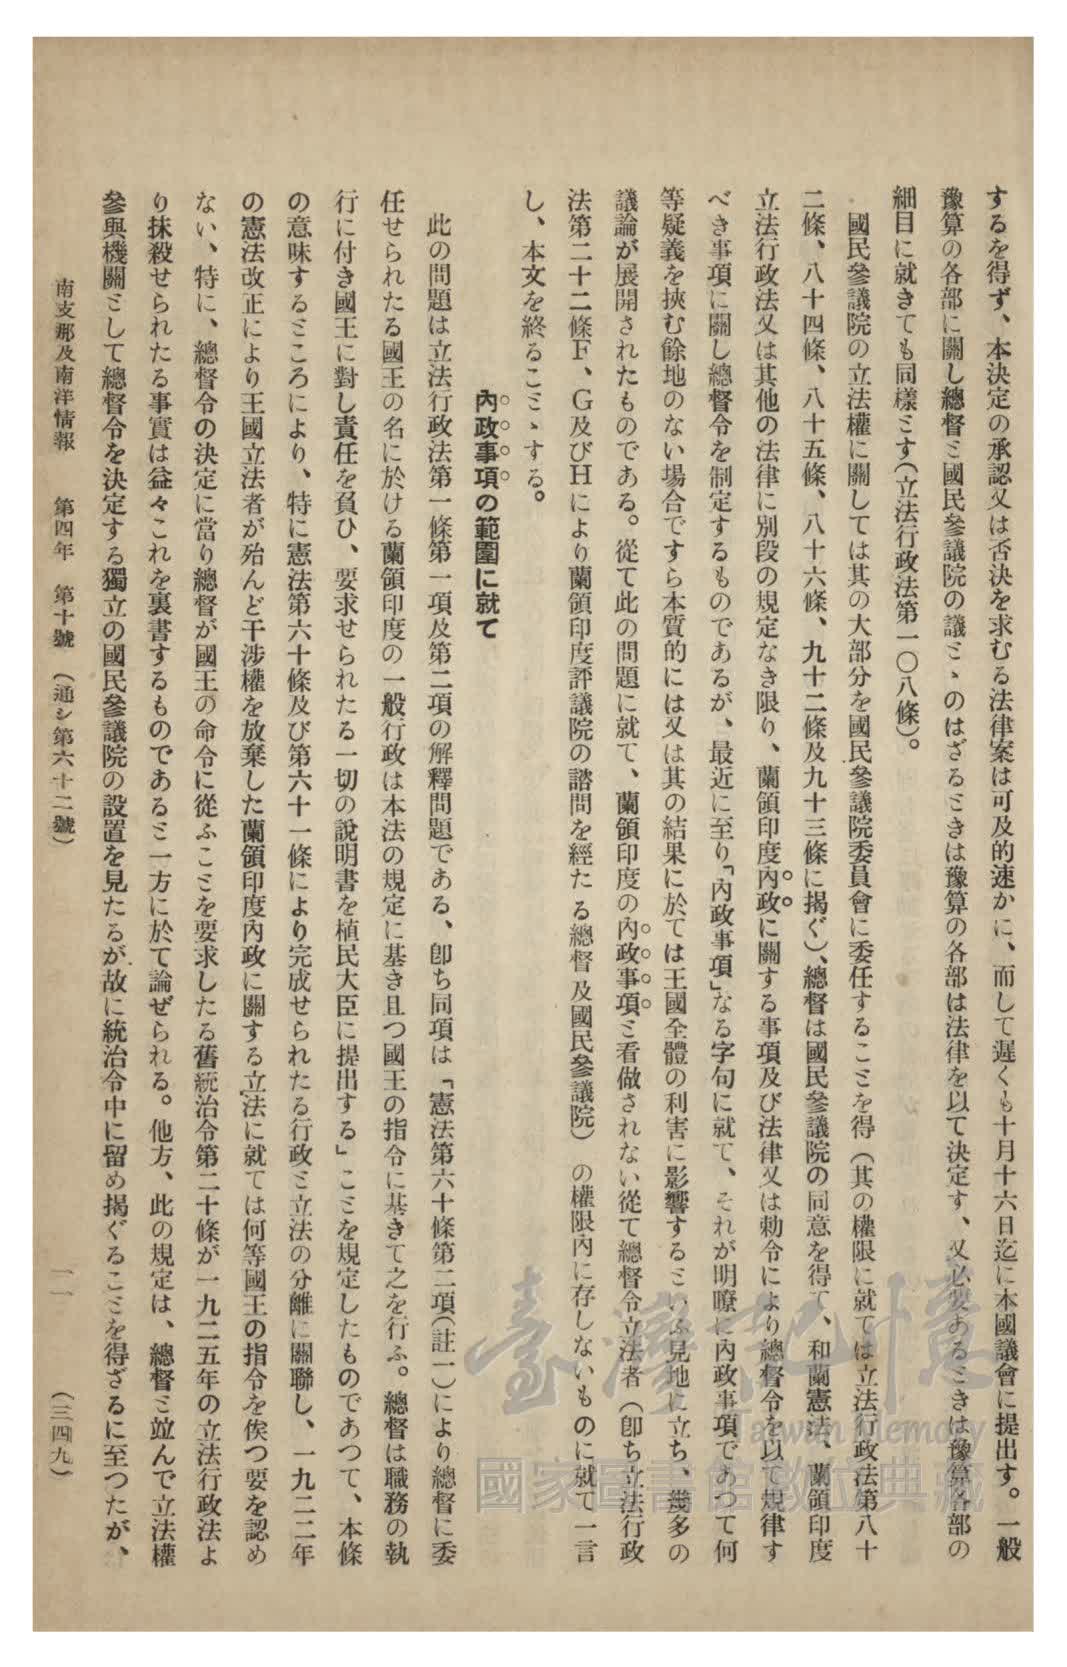 するを得ず、本決定の承認又は否決を求むる法律案は可及的速かに、而して遲くも十月十六日迄に本國議會に提出す。一般
豫算の各部に關し總督ミ國民參議院の議ミヽのはざるミきは豫算の各部は法律を以て決定す、又必要あるミきは豫算各部の
細目に就きても同樣ミす(立法行政法第一〇八條)。
國民參議院の立法權に關しては其の大部分を國民參議院委員會に委任するこミを得(其の權限に就ては立法行政法第八十
二條、八十四條、八十五條、八十六條、九十二條及九十三條に揭ぐ)、總督は國民參議院の同意を得て、和蘭憲法、蘭領印度
立法行政法又は其他の法律に別段の規定なき限り、蘭領印度內政に關する事項及び法律又は勅令により總督令を以て規律す
べき事項に關し總督令を制定するものであるが、最近に至り「內政事項」なる字句に就て、それが明瞭に內政事項であつて何
等疑義を挾む餘地のない場合ですら本質的には又は其の結果に於ては王國全體の利害に影響するミいふ見地に立ち、幾多の
議論が展開されたものである。從て此の問題に就て、蘭領印度の內政事項ミ看做されない從て總督令立法者(卽ち立法行政
法第二十二條F、G及びHにより蘭領印度評議院の諮問を經たる總督及國民參議院)の權限內に存しないものに就て一言
し、本文を終るこミヽする。
內政事項の範圍に就て
此の問題は立法行政法第一條第一項及第二項の解釋問題である、卽ち同項は「憲法第六十條第二項(註一)により總督に委
任せられたる國王の名に於ける蘭領印度の一般行政は本法の規定に基き且つ國王の指令に基きて之を行ふ。總督は職務の執
行に付き國王に對し責任を負ひ、要求せられたる一切の說明書を植民大臣に提出する」こミを規定したものであつて、本條
の意味するミころにより、特に憲法第六十條及び第六十一條により完成せられたる行政ミ立法の分離に關聯し、一九二二年
の憲法改正により王國立法者が殆んど干涉權を放棄した蘭領印度內政に關する立法に就ては何等國王の指令を俟つ要を認め
ない、特に、總督令の決定に當り總督が國王の命令に從ふこミを要求したる舊統治令第二十條が一九二五年の立法行政法よ
り抹殺せられたる事實は益々これを裏書するものであるミ一方に於て論ぜられる。他方、此の規定は、總督ミ竝んで立法權
參與機關ミして總督令を決定する獨立の國民參議院の設置を見たるが故に統治令中に留め揭ぐるこミを得ざるに至つたが、
南支那及南洋情報 第四年 第十號 (通シ第六十二號) 一一 (三四九)
臺灣記憶
Taiwan Memory
國家圖書館數位典藏